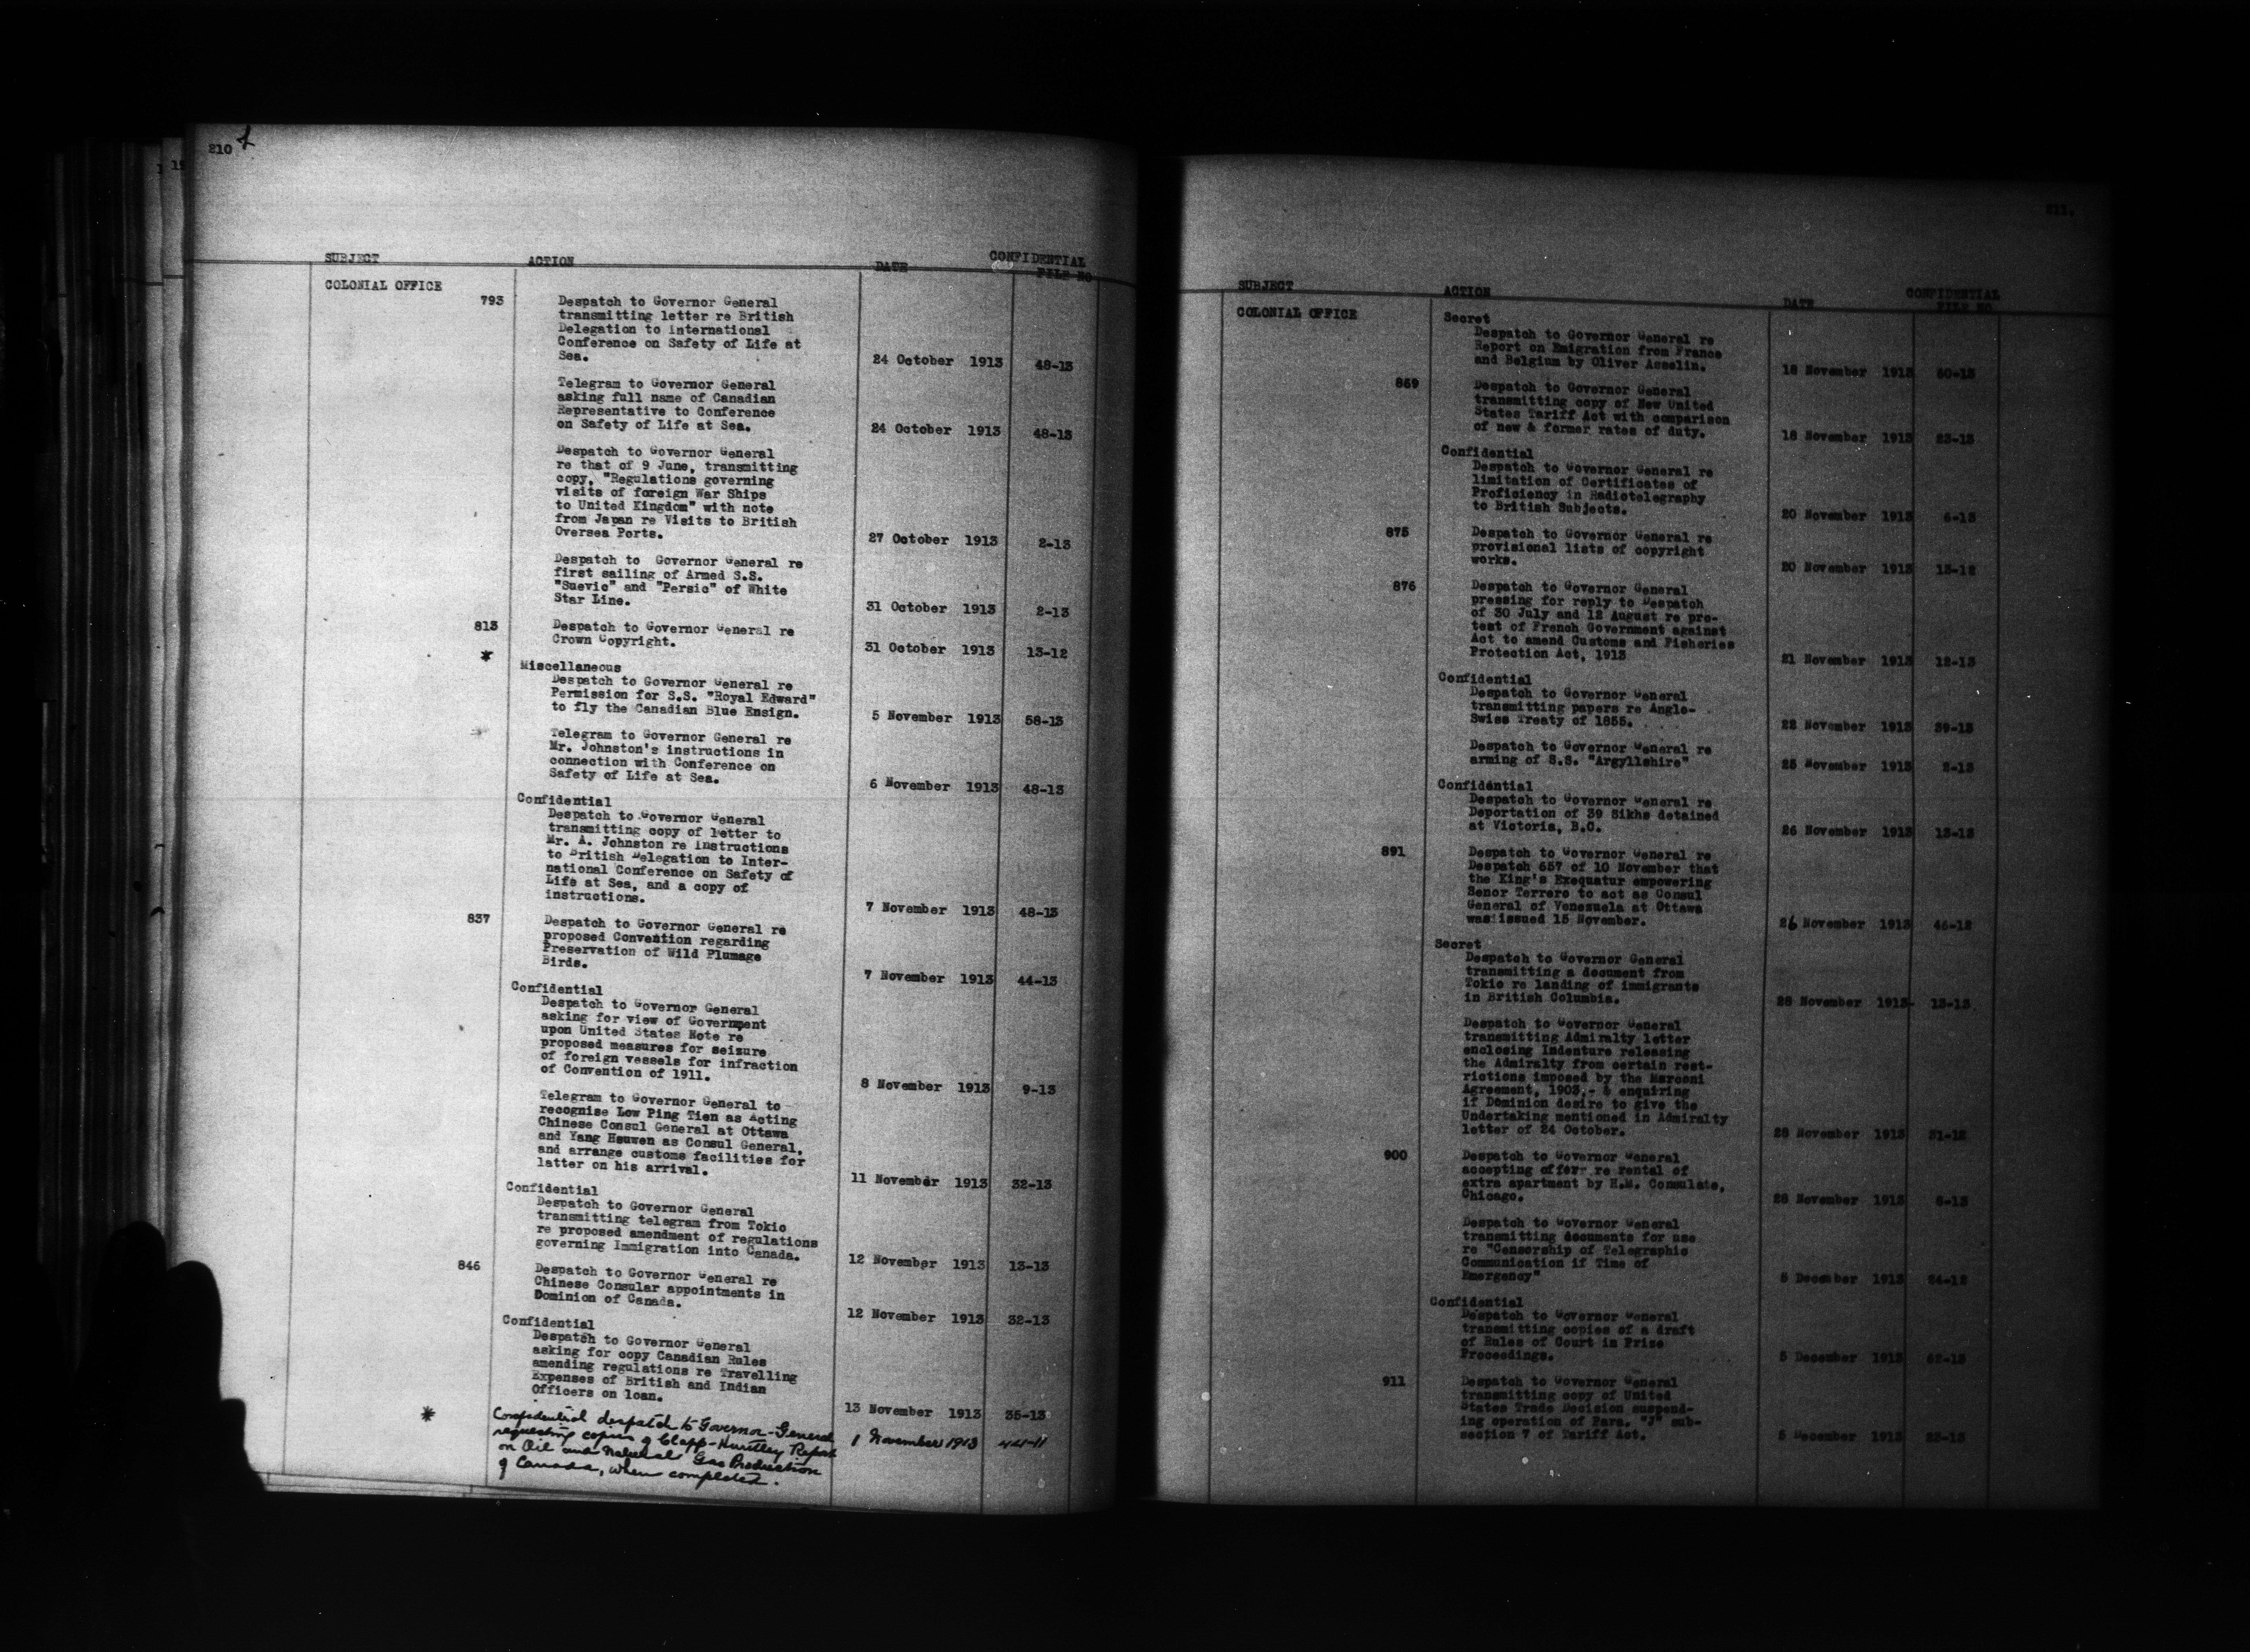 210
SUBJECT ACTION DATE CONFIDENTIAL FILE NO
COLONIAL OFFICE
793 Despatch to Governor General
transmitting letter re British
Delegation to international
Conference on Safety of Life at
Sea. 24 October 1913 48-13
Telegram to Governor General
asking full name of Canadian
Representative to Conference
on Safety of Life at Sea. 24 October 1913 48-13
Despatch to Governor General
re that of 9 June, transmitting
copy, "Regulations governing
visits of foreign War Ships
to United Kingdom" with note
from Japan re Visits to British
Oversea Ports. 27 October 1913 2-13
Despatch to Governor General re
first sailing of Armed S.S.
"Suevic" and "Persic" of White
Star Line. 31 October 1913 2-13
813 Despatch to Governor General re
Crown Copyright. 31 October 1913 13-12
* Miscellaneous
Despatch to Governor General re
Permission for S.S. "Royal Edward"
to fly the Canadian Blue Ensign. 5 November 1913 58-13
Telegram to Governor General re
Mr. Johnston's instructions in
connection with Conference on
Safety of Life at Sea. 6 November 1913 48-13
Confidential
Despatch to Governor General
transmitting copy of letter to
Mr. A. Johnston re Instructions
to British Delegation to Inter-
national Conference on Safety of
Life at Sea, and a copy of
instructions. 7 November 1913 48-13
837 Despatch to Governor General re
proposed Convention regarding
Preservation of Wild Plumage
Birds. 7 November 1913 44-13
Confidential
Despatch to Governor General
asking for view of Government
upon United States Note re
proposed measures for seizure
of foreign vessels for infraction
of Convention of 1911. 8 November 1913 9-13
Telegram to Governor General to
recognise Low Ping Tien as Acting
Chinese Consul General at Ottawa
and Yang Hsuwen as Consul General,
and arrange customs facilities for
latter on his arrival. 11 November 1913 32-13
Confidential
Despatch to Governor General
transmitting telegram from Tokio
re proposed amendment of regulations
governing Immigration into Canada. 12 November 1913 13-13
846 Despatch to Governor General re
Chinese Consular appointments in
Dominion of Canada. 12 November 1913 32-13
Confidential
Despatch to Governor General
asking for copy Canadian Rules
amending regulations re Travelling
Expenses of British and Indian
Officers on loan. 13 November 1913 35-13
* Confidential despatch to Governor-General
requesting copies of Clapp-Huntley Report 1 November 1913 44-11
on Oil and Natural Gas Production
of Canada, when completed.
211.
SUBJECT ACTION DATE CONFIDENTIAL FILE NO
COLONIAL OFFICE
Secret
Despatch to Governor General re
Report on Emigration from France
and Belgium by Oliver Asselin. 18 November 1913 60-13
869 Despatch to Governor General
transmitting copy of New United
States Tariff Act with comparison
of new & former rates of duty. 18 November 1913 23-13
Confidential
Despatch to Governor General re
limitation of Certificates of
Proficiency in Radiotelegraphy
to British Subjects. 20 November 1913 6-13
875 Despatch to Governor General re
provisional lists of copyright
works. 20 November 1913 13-12
876 Despatch to Governor General
pressing for reply to Despatch
of 30 July and 12 August re pro-
test of French Government against
Act to amend Customs and Fisheries
Protection Act, 1913 21 November 1913 12-13
Confidential
Despatch to Governor General
transmitting papers re Anglo-
Swiss Treaty of 1855. 22 November 1913 39-13
Despatch to Governor General re
arming of S.S. "Argyllshire" 25 November 1913 2-13
Confidential
Despatch to Governor General re
Deportation of 39 Sikhs detained
at Victoria, B.C. 26 November 1913 13-13
891 Despatch to Governor General re
Despatch 657 of 10 November that
the King's Exequatur empowering
Senor Terrero to act as Consul
General of Venezuela at Ottawa
was issued 15 November. 26 November 1913 46-12
Secret
Despatch to Governor General
transmitting a document from
Tokio re landing of immigrants
in British Columbia. 28 November 1913- 13-13
Despatch to Governor General
transmitting Admiralty letter
enclosing Indenture releasing
the Admiralty from certain rest-
rictions imposed by the Marconi
Agreement, 1903,- & enquiring
if Dominion desire to give the
Undertaking mentioned in Admiralty
letter of 24 October. 28 November 1913 31-12
900 Despatch to Governor General
accepting offer re rental of
extra apartment by H.M. Consulate,
Chicago. 28 November 1913 8-13
Despatch to Governor General
transmitting documents for use
re "Censorship of Telegraphic
Communication if Time of
Emergency" 5 December 1913 24-12
Confidential
Despatch to Governor General
transmitting copies of a draft
of Rules of Court in Prize
Proceedings. 5 December 1913 62-13
911 Despatch to Governor General
transmitting copy of United
States Trade Decision suspend-
ing operation of Para. "J" sub-
section 7 of Tariff Act. 5 December 1913 23-13